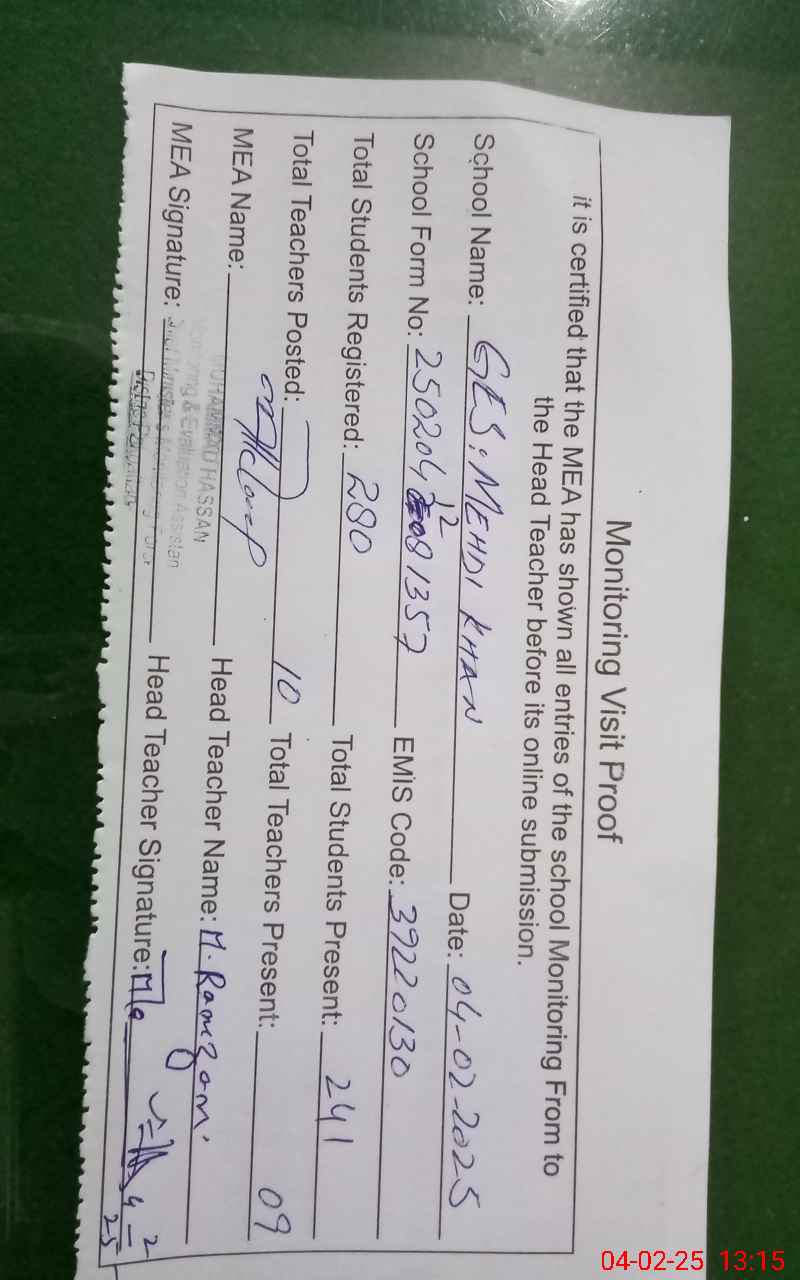 Monitoring Visit Proof
it is certified that the MEA has shown all entries of the school Monitoring From to
the Head Teacher before its online submission.
School Name: GES: MEHDI KHAN Date: 04-02-2025
School Form No: 250204 12 081357 EMIS Code: 39220130
Total Students Registered: 280 Total Students Present: 241
Total Teachers Posted: 10 Total Teachers Present: 09
MEA Name: Head Teacher Name: M. Ramzan.
MUHAMMAD HASSAN
Monitoring & Evaluation Assistan
MEA Signature: Head Teacher Signature:
04-02-25 13:15